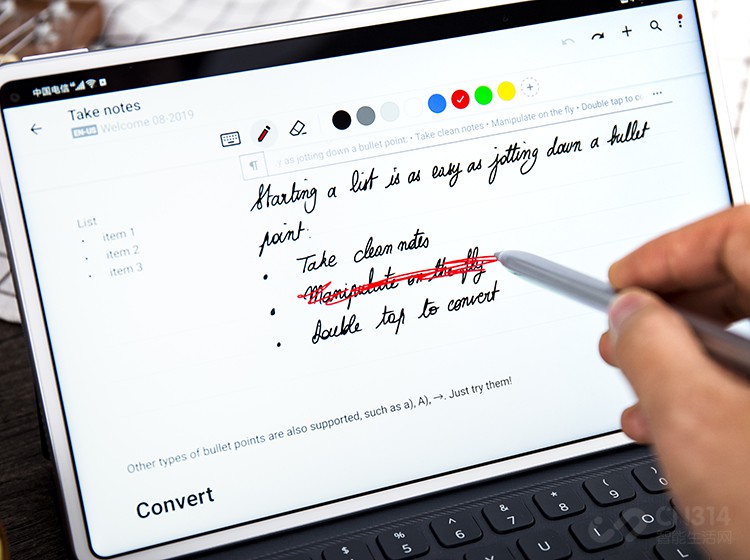 中国电信
Take notes
EN-US Welcome 08-2019
¶
as jotting down a bullet point: • Take clean notes • Manipulate on the fly • Double tap to c
Starting a list is as easy as jotting down a bullet
point:
• Take clean notes
• Manipulate on the fly
• Double tap to convert
List
• item 1
• item 2
• item 3
Other types of bullet points are also supported, such as a), A), →. Just try them!
Convert
$
% 5
^ 6
& 7
* 8
( 9
) 0
U
I
O
CN314
智能生活网